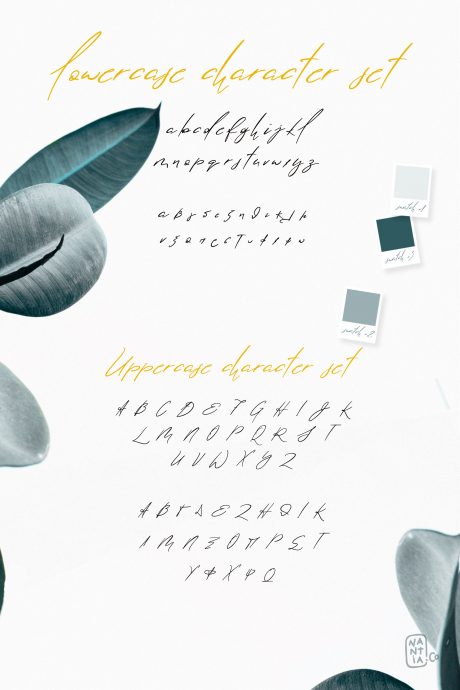 lowercase character set
abcdefghijkl
mnopqrstuvwxyz
αβγδεζηθικλ
Uppercase character set
A B C D E F G H I J K
L M N O P Q R S T
U V W X Y Z
Α Β Γ Δ Ε Ζ Η Θ Ι Κ
Λ Μ Ν Ξ Ο Π Ρ Σ Τ
Υ Φ Χ Ψ Ω
swatch #1
swatch #3
swatch #2
NANTIA.Co